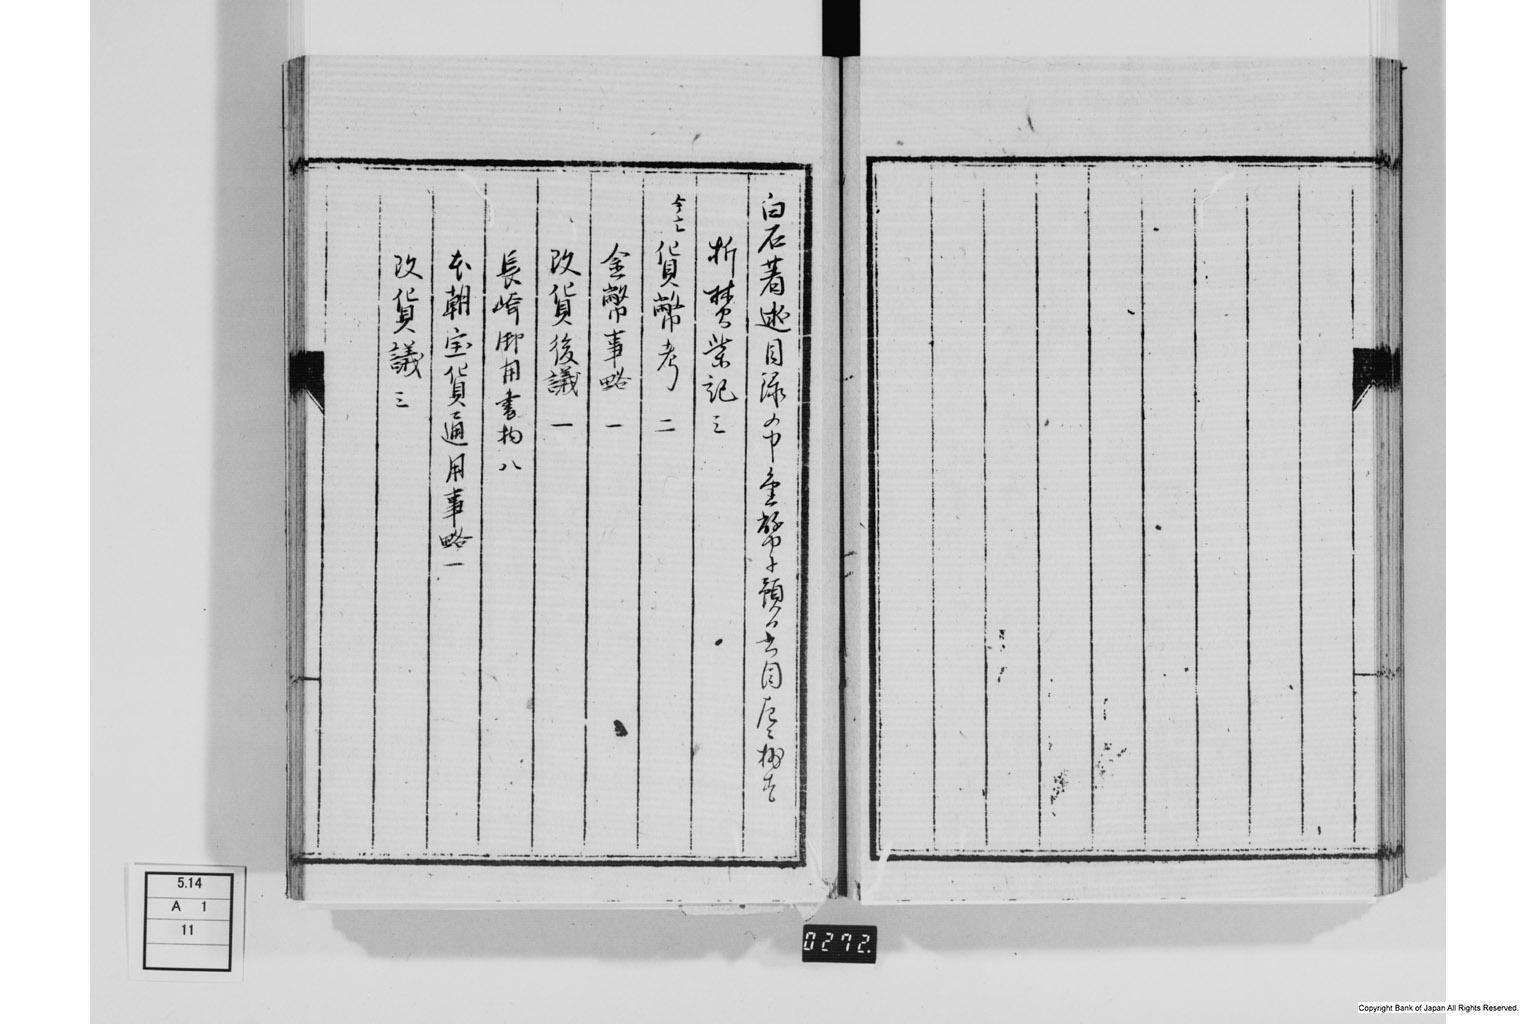 白石著述目録の中金幣ニ預る書目
折焚柴記 三
今亡 貨幣考 二
金幣事略 一
改貨後議 一
長崎御用書物 八
本朝宝貨通用事略 一
改貨議 三
5.14
A 1
11
0272.
Copyright Bank of Japan All Rights Reserved.